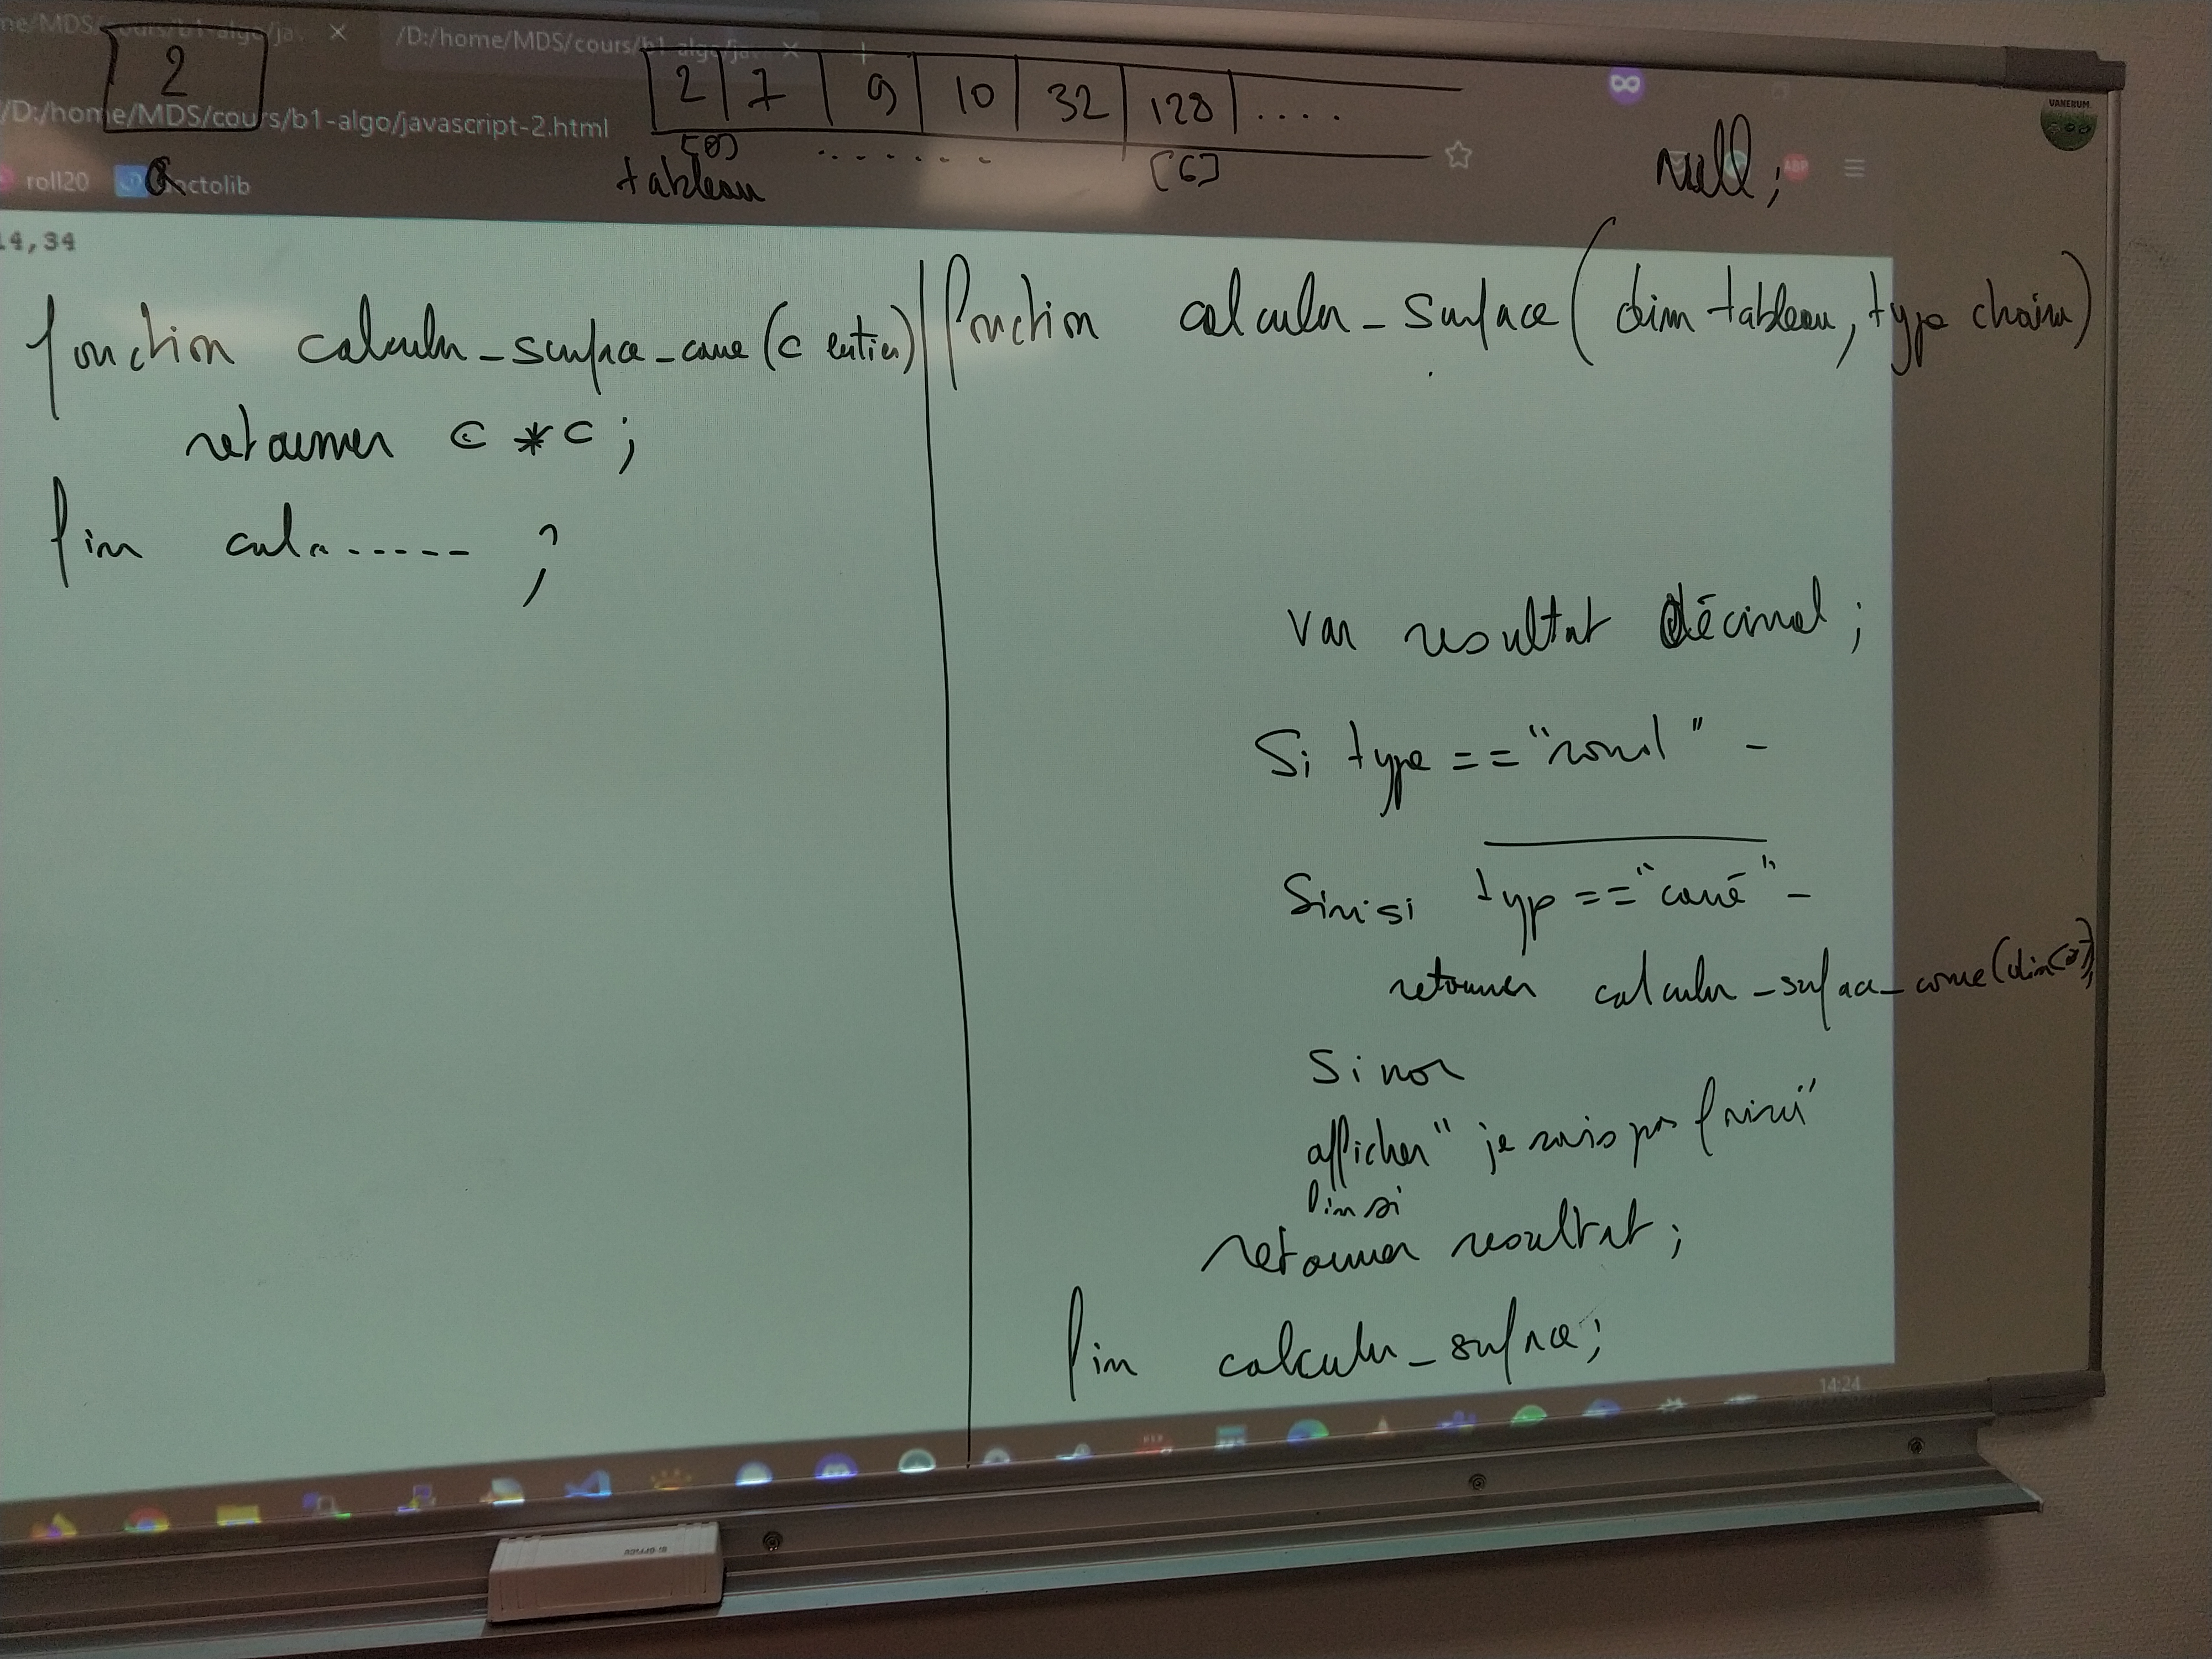 /D:/home/MDS/cours/b1-algo/ja
/D:/home/MDS/cours/b1-algo/javascript-2.html
roll20
14,34
2
a
2 7 9 10 32 128 ....
[0] ....... [6]
tableau
null;
VANERUM
ABP
fonction calculer_surface_carre (c entier)
retourner c * c;
fin calc...... ;
fonction calculer_surface (dim tableau, type chaine)
var resultat décimal;
Si type == "rond" -
Sinisi typ == "carré" -
retourner calculer_surface_carre(dim[0]);
Sinon
afficher "je sais pas faire"
finsi
retourner resultat;
fin calculer_surface;
14:24